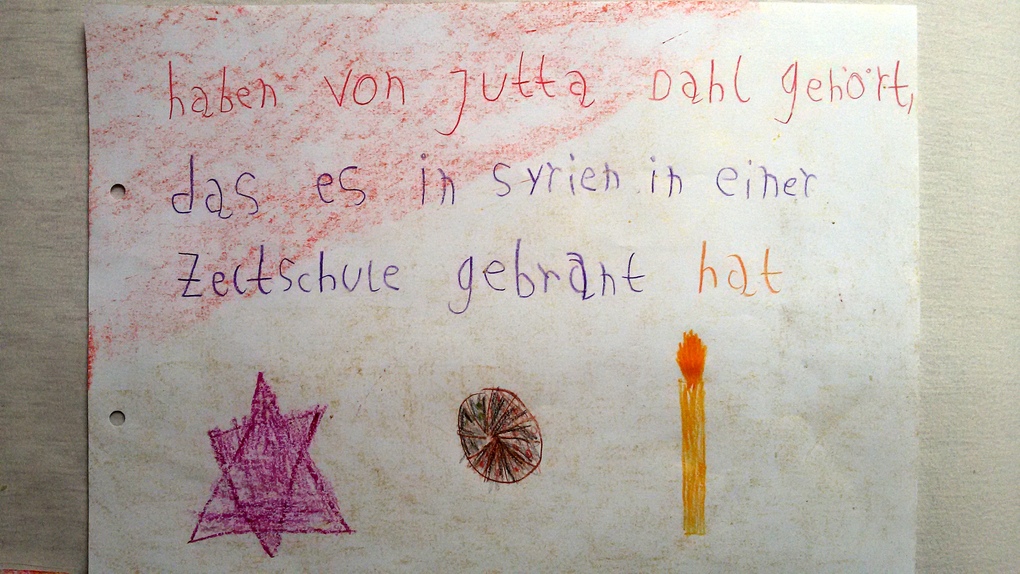 haben von Jutta Dahl gehört,
das es in Syrien in einer
Zeltschule gebrant hat